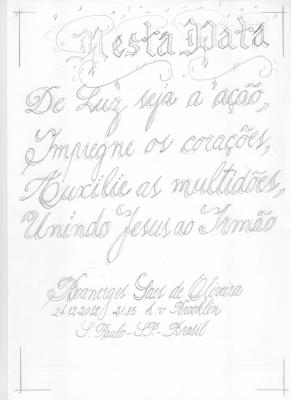 Nesta Data
De Luz seja a ação,
Impregne os corações,
Auxilie as multidões,
Unindo Jesus ao Irmão
de Oliveira
24.12.2012 21:35 h. v Brooklin
S. Paulo - SP. - Brasil